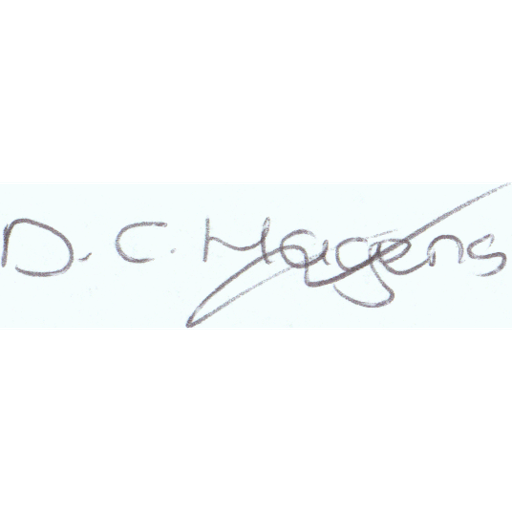 D. C. Hagens